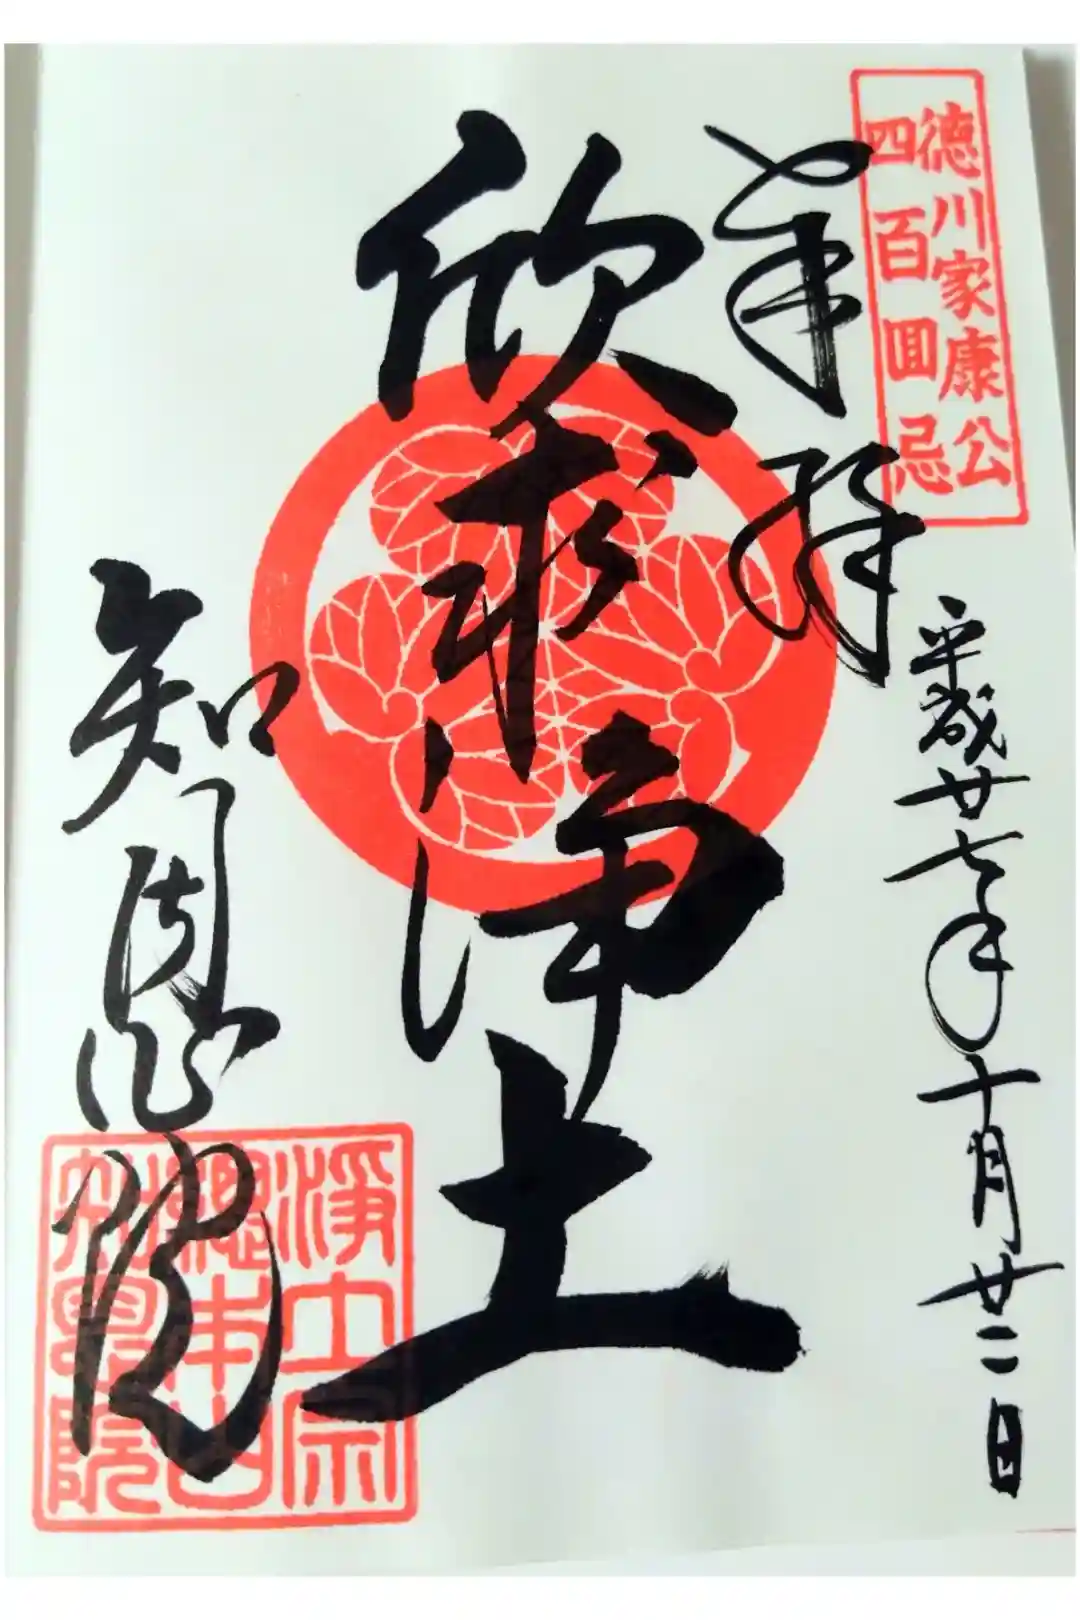 徳川家康公
四百回忌
奉拝
平成廿七年十月廿二日
欣求浄土
知恩院
浄土宗
總本山
知恩院